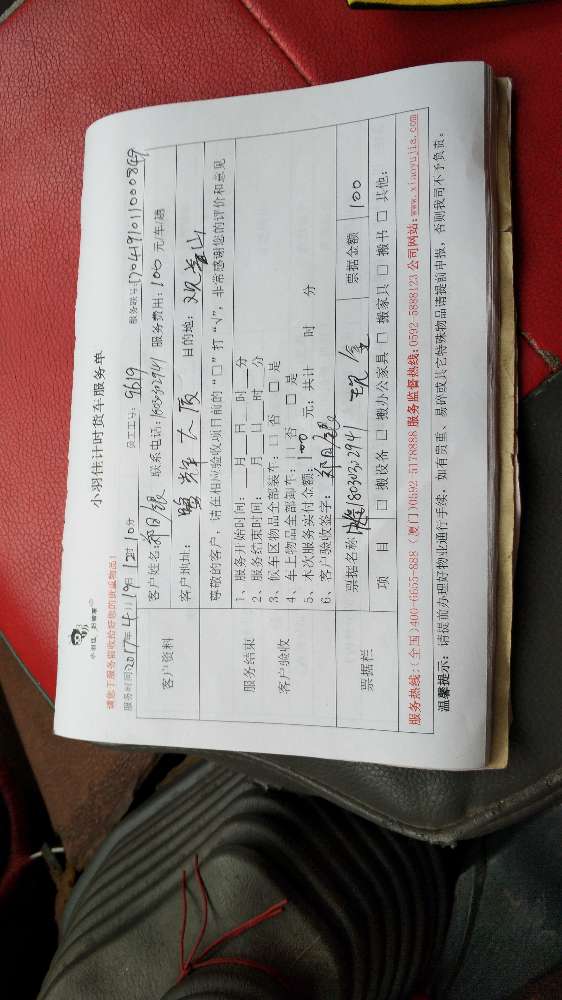 小羽佳计时货车服务单
请您于服务前收拾好您的贵重物品!
服务时间:2017年4月19日12时10分 员工工号: 9619 服务联号:D04191011000849
客户资料
客户姓名: 联系电话:18030302941 服务费用: 100 元/车趟
客户地址: 鹭辉大厦 目的地: 观音山
服务结束
客户验收
尊敬的客户, 请在相应验收项目前的“□”打“√”, 非常感谢您的评价和意见
1、服务开始时间: 月 日 时 分
2、服务结束时间: 月 日 时 分
3、候车区物品全部装车: □ 否 □ 是
4、车上物品全部卸车: □ 否 □ 是
5、本次服务实付金额: 100 元; 共计 时 分
6、客户验收签字:
票据栏
票据名称 18030302941 现金 票据金额 100
项 目 □ 搬设备 □ 搬办公家具 □ 搬家具 □ 搬书 □ 其他:
服务热线: (全国)400-6655-888 (厦门)0592-5178888 服务监督热线: 0592-5888123 公司网站: www.xiaoyujia.com
温馨提示: 请提前办理好物业通行手续, 如有贵重、易碎或其它特殊物品请提前申报, 否则我司不予负责。